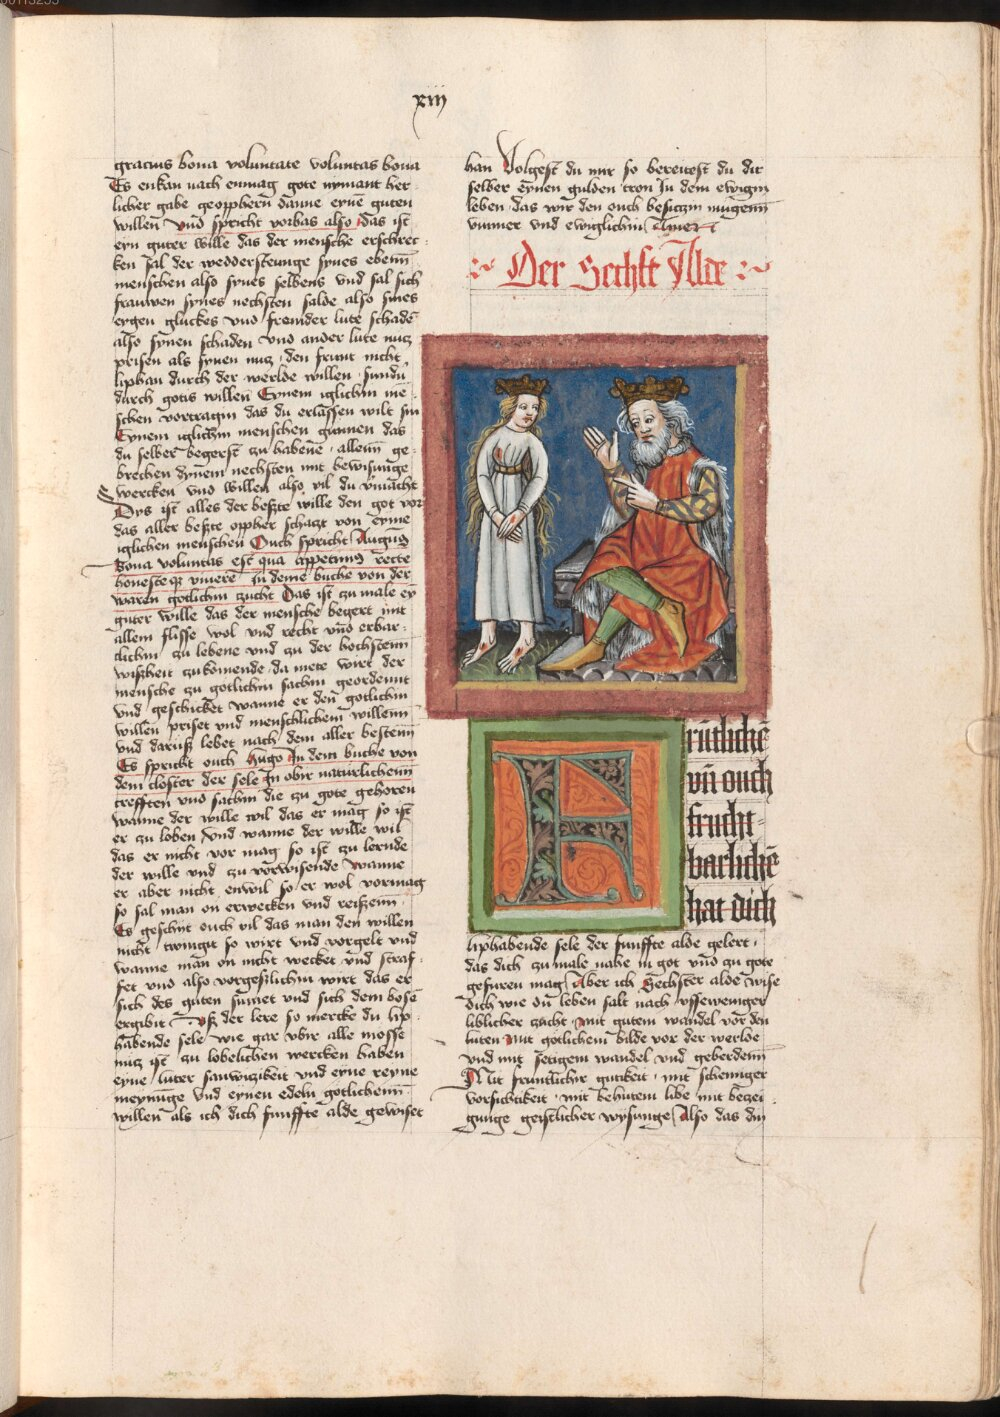 xiij
gracius bona voluntate voluntas bona
Es enkan nach enmag gote nymant her
licher gabe geopphern danne eyne guten
willen vnd spricht vorbas also das ist
eyn guter wille das der mensche erschrec
ken sal der weddersteunge synes ebenn
menschen also synes selbens vnd sal sich
frauwen synes nechsten salde also sines
eygen gluckes vnd fremder lute schadē
also synen schaden vnd ander lute nutz
prisen als synen nutz den frunt nicht
liphan durch der werlde willen sundū
durch gotis willen Eynem iglichin me
schen vortragin das du erlassen wilt sin
Eynem iglichin menschen gunnen das
du selber begerst zu habene allenn ge
brechen dynem nechsten mit bewisunge
wercken vnd willen also vil du vmacht
Dys ist alles der beste wille den got vor
das aller beste oppher schatzt von eyme
iglichen menschen Ouch spricht Augus
Bona voluntas est qua appetimus recte
honesteqz viuere in deme buche von der
waren gotlichin zucht Das ist zu male ey
guter wille das der mensche begert mit
allem flisse wol vnd recht vnd erbar
clichin zu lebene vnd zu der hochstenn
wisheit zukomende da mete wirt der
mensche zu gotlichin sachin geordennt
vnd geschicket wanne er den gotlichin
willen priset vnd menschlichem willenn
vnd daruß lebet nach dem aller bestenn
Es spricht ouch Hugo In dem buche von
dem closter der sele In obir naturlichenn
crefften vnd sachin die zu gote gehoren
wanne der wille wil das er mag so ist
er zu loben vnd wanne der wille wil
das er nicht vor mag so ist zu lernde
der wille vnd zu vorwisende wanne
er aber nicht enwil so er wol vormag
so sal man on erwecken vnd reiszenn
Es geschyt ouch vil das man den willen
nicht twingit so wirt vnd vorgelt vnd
wanne man on nicht wecket vnd straf
fet vnd also vorgeszlichin wirt das er
sich des guten sumet vnd sich dem bosē
ergibit Uß der lere so mercke du lip
habende sele wie gar vbir alle mosse
nutz ist zu lobelichen wercken haben
eyne luter sanwizikeit vnd eyne reyne
meynunge vnd eynen edeln gotlichenn
willen als ich dich funffte alde gewiset
han Volgest du mir so bereitest du dir
selber eynen gulden tron In dem ewigin
leben das wir den ouch besitzin mugenn
ummer vnd ewiglichin Amen
Der Sechst Alde
Frūtlichē
vn̄ ouch
frucht
barlichē
hat dich
liphabende sele der funffte alde gelert
das dich zu male nahe in got vnd zu gote
gefuren mag Aber ich Sechster alde wise
dich wie du leben salt nach vssewenniger
liblicher zucht mit gutem wandel vor den
luten mit gotlichem bilde vor der werlde
vnd mit setigem wandel vnd geberdenn
Mit fruntlichir gutikeit mit schemiger
vorsichtikeit mit behutem libe mit bezei
gunge geistlicher wysunge Also das du